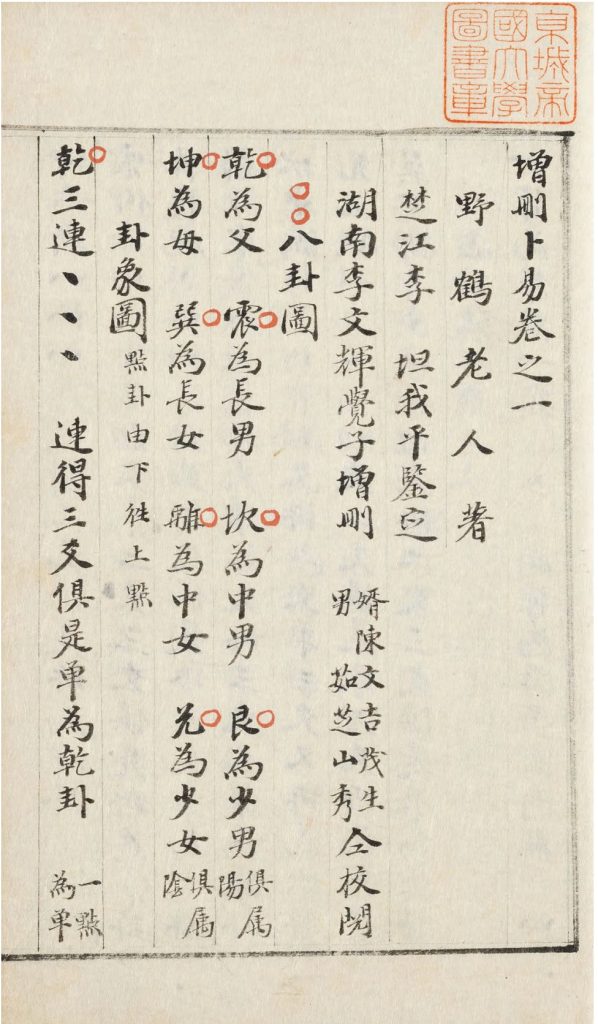 京城帝
國大學
圖書章
增刪卜易卷之一
野鶴老人著
楚江李 坦我平鑒定
湖南李文輝覺子增刪 婿陳文吉茂生 男茹芝山秀 仝校閱
八卦圖
乾為父 震為長男 坎為中男 艮為少男 俱属陽
坤為母 巽為長女 離為中女 兌為少女 俱属陰
卦象圖 點卦由下徃上點
乾三連、、、 連得三爻俱是单為乾卦 一點為单